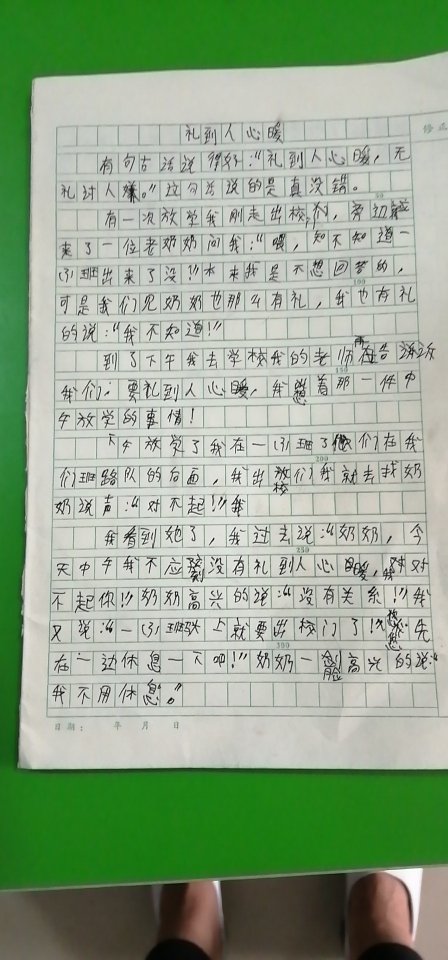 礼到人心暖
修正
有句古话说得好:“礼到人心暖,无
礼讨人嫌。”这句话说的是真没错。
有一次放学我刚走出校门,旁边
来了一位老奶奶问我:“喂,知不知道一
(3)班出来了没!”本来我是不想回答的,
100
可是我们见奶奶也那么有礼,我也有礼
的说:“我不知道!”
到了下午我去学校我的老师再告诉
150
我们:要礼到人心暖,我想着那一件中
午放学的事情!
下午放学了我在一(3)班了他们在我
200
们班路队的后面,我出放校们我就去找奶
奶说声:“对不起!”我
我看到她了,我过去说:“奶奶,今
250
天中午我不应该没有礼到人心暖,我对
不起你!”奶奶高兴的说:“没有关系!”我
又说:“一(3)班马上就要出校门了!”您先
在一边休息一下吧!”奶奶一脸高兴的说:“
300
我不用休息。”
日期: 年 月 日